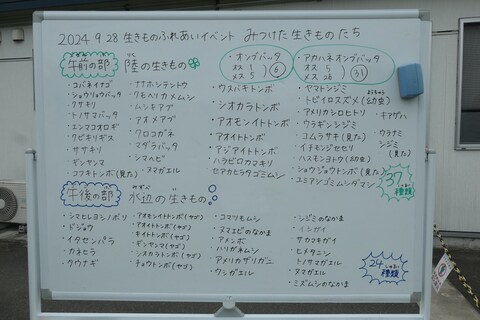 2024.9.28 生きものふれあいイベント みつけた生きものたち
午前の部 陸の生きもの
・オンブバッタ
オス 1
メス 5
6
・アカハネオンブバッタ
オス 5
メス 26
31
・コバネイナゴ
・ショウリョウバッタ
・クサキリ
・トノサマバッタ
・エンマコオロギ
・クビキリギス
・ササキリ
・ギンヤンマ
・コフキトンボ(見た)
・ナナホシテントウ
・クモヘリカメムシ
・ムシキアブ
・アオメアブ
・クロコガネ
・マダラバッタ
・シマヘビ
・ヌマガエル
・ウスバキトンボ
・シオカラトンボ
・アオモンイトトンボ
・アオイトトンボ
・アジアイトトンボ
・ハラビロカマキリ
・セアカヒラタゴミムシ
・ヤマトシジミ
・トビイロスズメ(幼虫)
ようちゅう
・アメリカシロヒトリ
・ウラギンシジミ
・コムラサキ(見た)
・イチモンジセセリ
・ハスモンヨトウ(幼虫)
・ショウジョウトンボ(見た)
・ユミアシゴミムシダマシ
・キアゲハ
・ウラナミシジミ
(見た)
37種類
午後の部 水辺の生きもの
・シマヒレヨシノボリ
・ドジョウ
・イタセンパラ
・カネヒラ
・タウナギ
・アオモンイトトンボ(ヤゴ)
・アオイトトンボ(ヤゴ)
・キイトトンボ(ヤゴ)
・ギンヤンマ(ヤゴ)
・シオカラトンボ(ヤゴ)
・チョウトンボ(ヤゴ)
・コマツモムシ
・ヌマエビのなかま
・アメンボ
・ハリガネムシ
・アメリカザリガニ
・ウシガエル
・シジミのなかま
・イシガイ
・サカマキガイ
・ヒメタニシ
・トノサマガエル
・ヌマガエル
・ミズムシのなかま
24種類